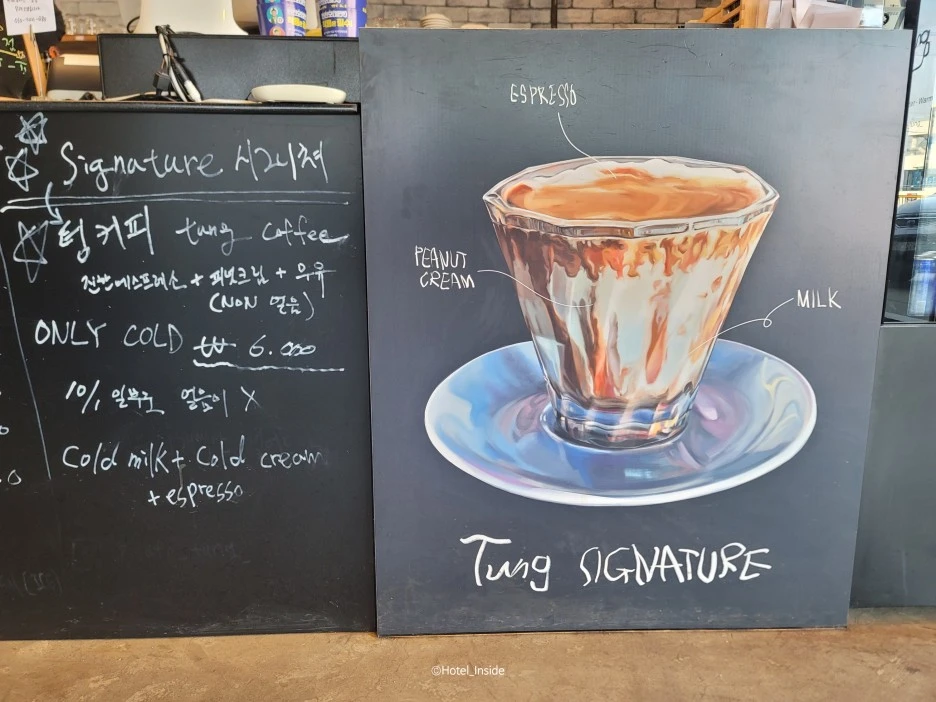 Signature 시그니쳐
텅 커피 tung coffee
진한에스프레소 + 피넛크림 + 우유
(NON 얼음)
ONLY COLD ₩ 6.000
얼음이 X
Cold milk + Cold cream
+ espresso
ESPRESSO
PEANUT
CREAM
MILK
Tung SIGNATURE
©Hotel_Inside